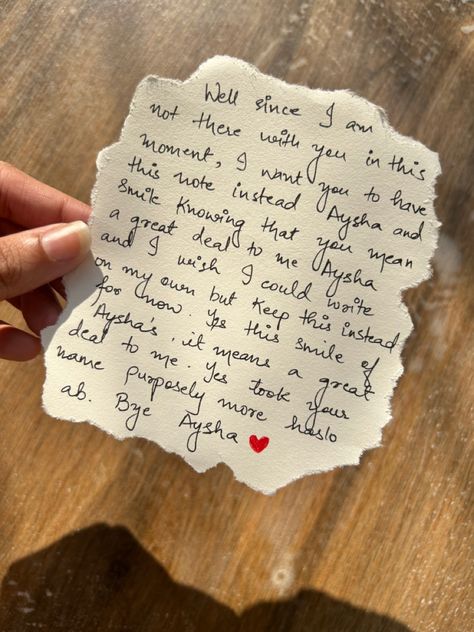 Well since I am
not there with you in this
moment, I want you to have
this note instead Aysha and
smile knowing that you mean
a great deal to me Aysha
and I wish I could write
on my own but keep this instead
for now. Yes this smile of
Aysha's, it means a great
deal to me. Yes took your
name purposely more haslo
ab. Bye Aysha ❤